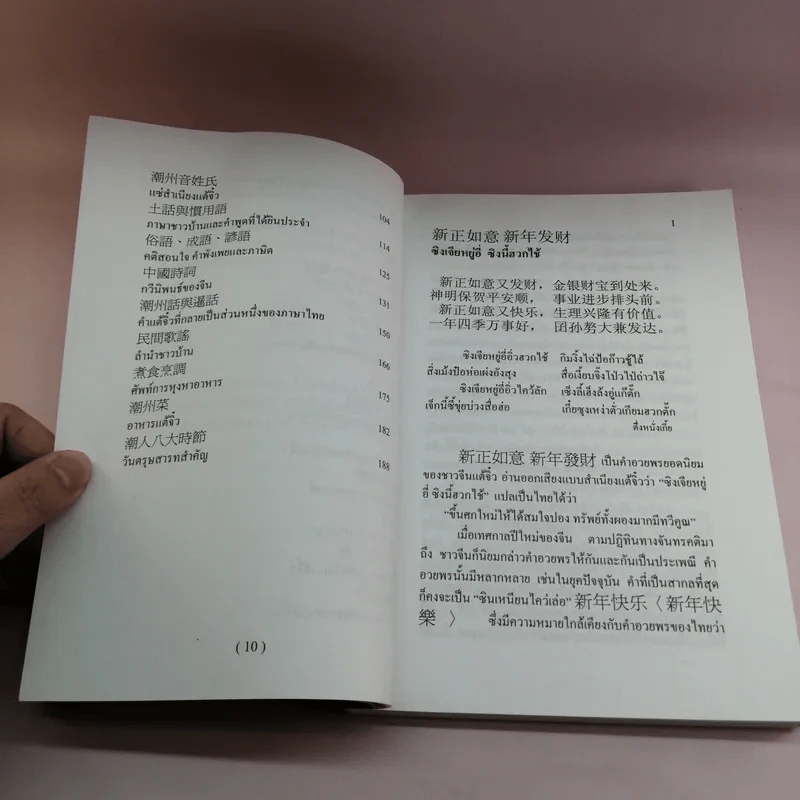 潮州音姓氏
แซ่สำเนียงแต้จิ๋ว 104
土話與慣用語
ภาษาชาวบ้านและคำพูดที่ได้ยินประจำ 114
俗語、成語、諺語
คติสอนใจ คำพังเพยและภาษิต 125
中國詩詞
กวีนิพนธ์ของจีน 131
潮州話與暹話
คำแต้จิ๋วที่กลายเป็นส่วนหนึ่งของภาษาไทย 150
民間歌謠
ลำนำชาวบ้าน 166
煮食烹調
ศัพท์การหุงหาอาหาร 175
潮州菜
อาหารแต้จิ๋ว 182
潮人八大時節
วันตรุษสารทสำคัญ 188
( 10 )
1
新正如意 新年发财
ซิงเจียหยู่อี่ ซิงนี้ฮวกไช้
新正如意又发财， 金银财宝到处来。
神明保贺平安顺， 事业进步排头前。
新正如意又快乐， 生理兴隆有价值。
一年四季万事好， 团孙努大兼发达。
ซิงเจียหยู่อี่อิ่วฮวกไช้ กิมงิ้งไฉ่ป้อก๊าวชู้ไล้
สิ่งเม้งป้อห่อเผ่งอังสุง สื่อเงี้ยบจิ้งโป่วไป่ถ่าวไจ๊
ซิงเจียหยู่อี่อิ่วไคว้ลัก เซ็งลี้เฮ็งล้งอู่แก็ตั๊ก
เจ็กนี้ซี้ขุ่ยบ่วงสื่อฮ่อ เกี๋ยซุงเหง่าตั่วเกียมฮวกตั๊ก
ตึ่งหนั่งเกี้ย
新正如意 新年發財 เป็นคำอวยพรยอดนิยม
ของชาวจีนแต้จิ๋ว อ่านออกเสียงแบบสำเนียงแต้จิ๋วว่า “ซิงเจียหยู่
อี่ ซิงนี้ฮวกไช้” แปลเป็นไทยได้ว่า
“ขึ้นศกใหม่ให้ได้สมใจปอง ทรัพย์ทั้งผองมากมีทวีคูณ”
เมื่อเทศกาลปีใหม่ของจีน ตามปฏิทินทางจันทรคติมา
ถึง ชาวจีนก็นิยมกล่าวคำอวยพรให้กันและกันเป็นประเพณี คำ
อวยพรนั้นมีหลากหลาย เช่นในยุคปัจจุบัน คำที่เป็นสากลที่สุด
ก็คงจะเป็น “ซินเหนียนไคว่เล่อ” 新年快乐〈新年快
樂〉 ซึ่งมีความหมายใกล้เคียงกับคำอวยพรของไทยว่า